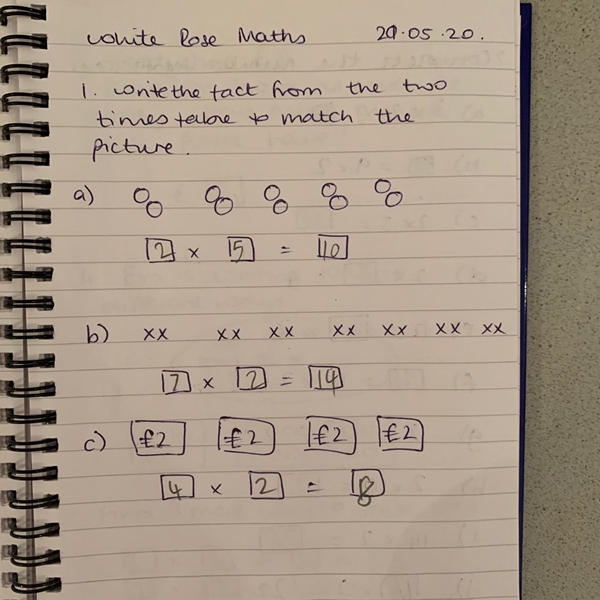 White Rose Maths 29.05.20.
1. write the fact from the two
times table to match the
picture.
a)
2 × 5 = 10
b) xx xx xx xx xx xx xx
7 × 2 = 14
c) £2 £2 £2 £2
4 × 2 = 8